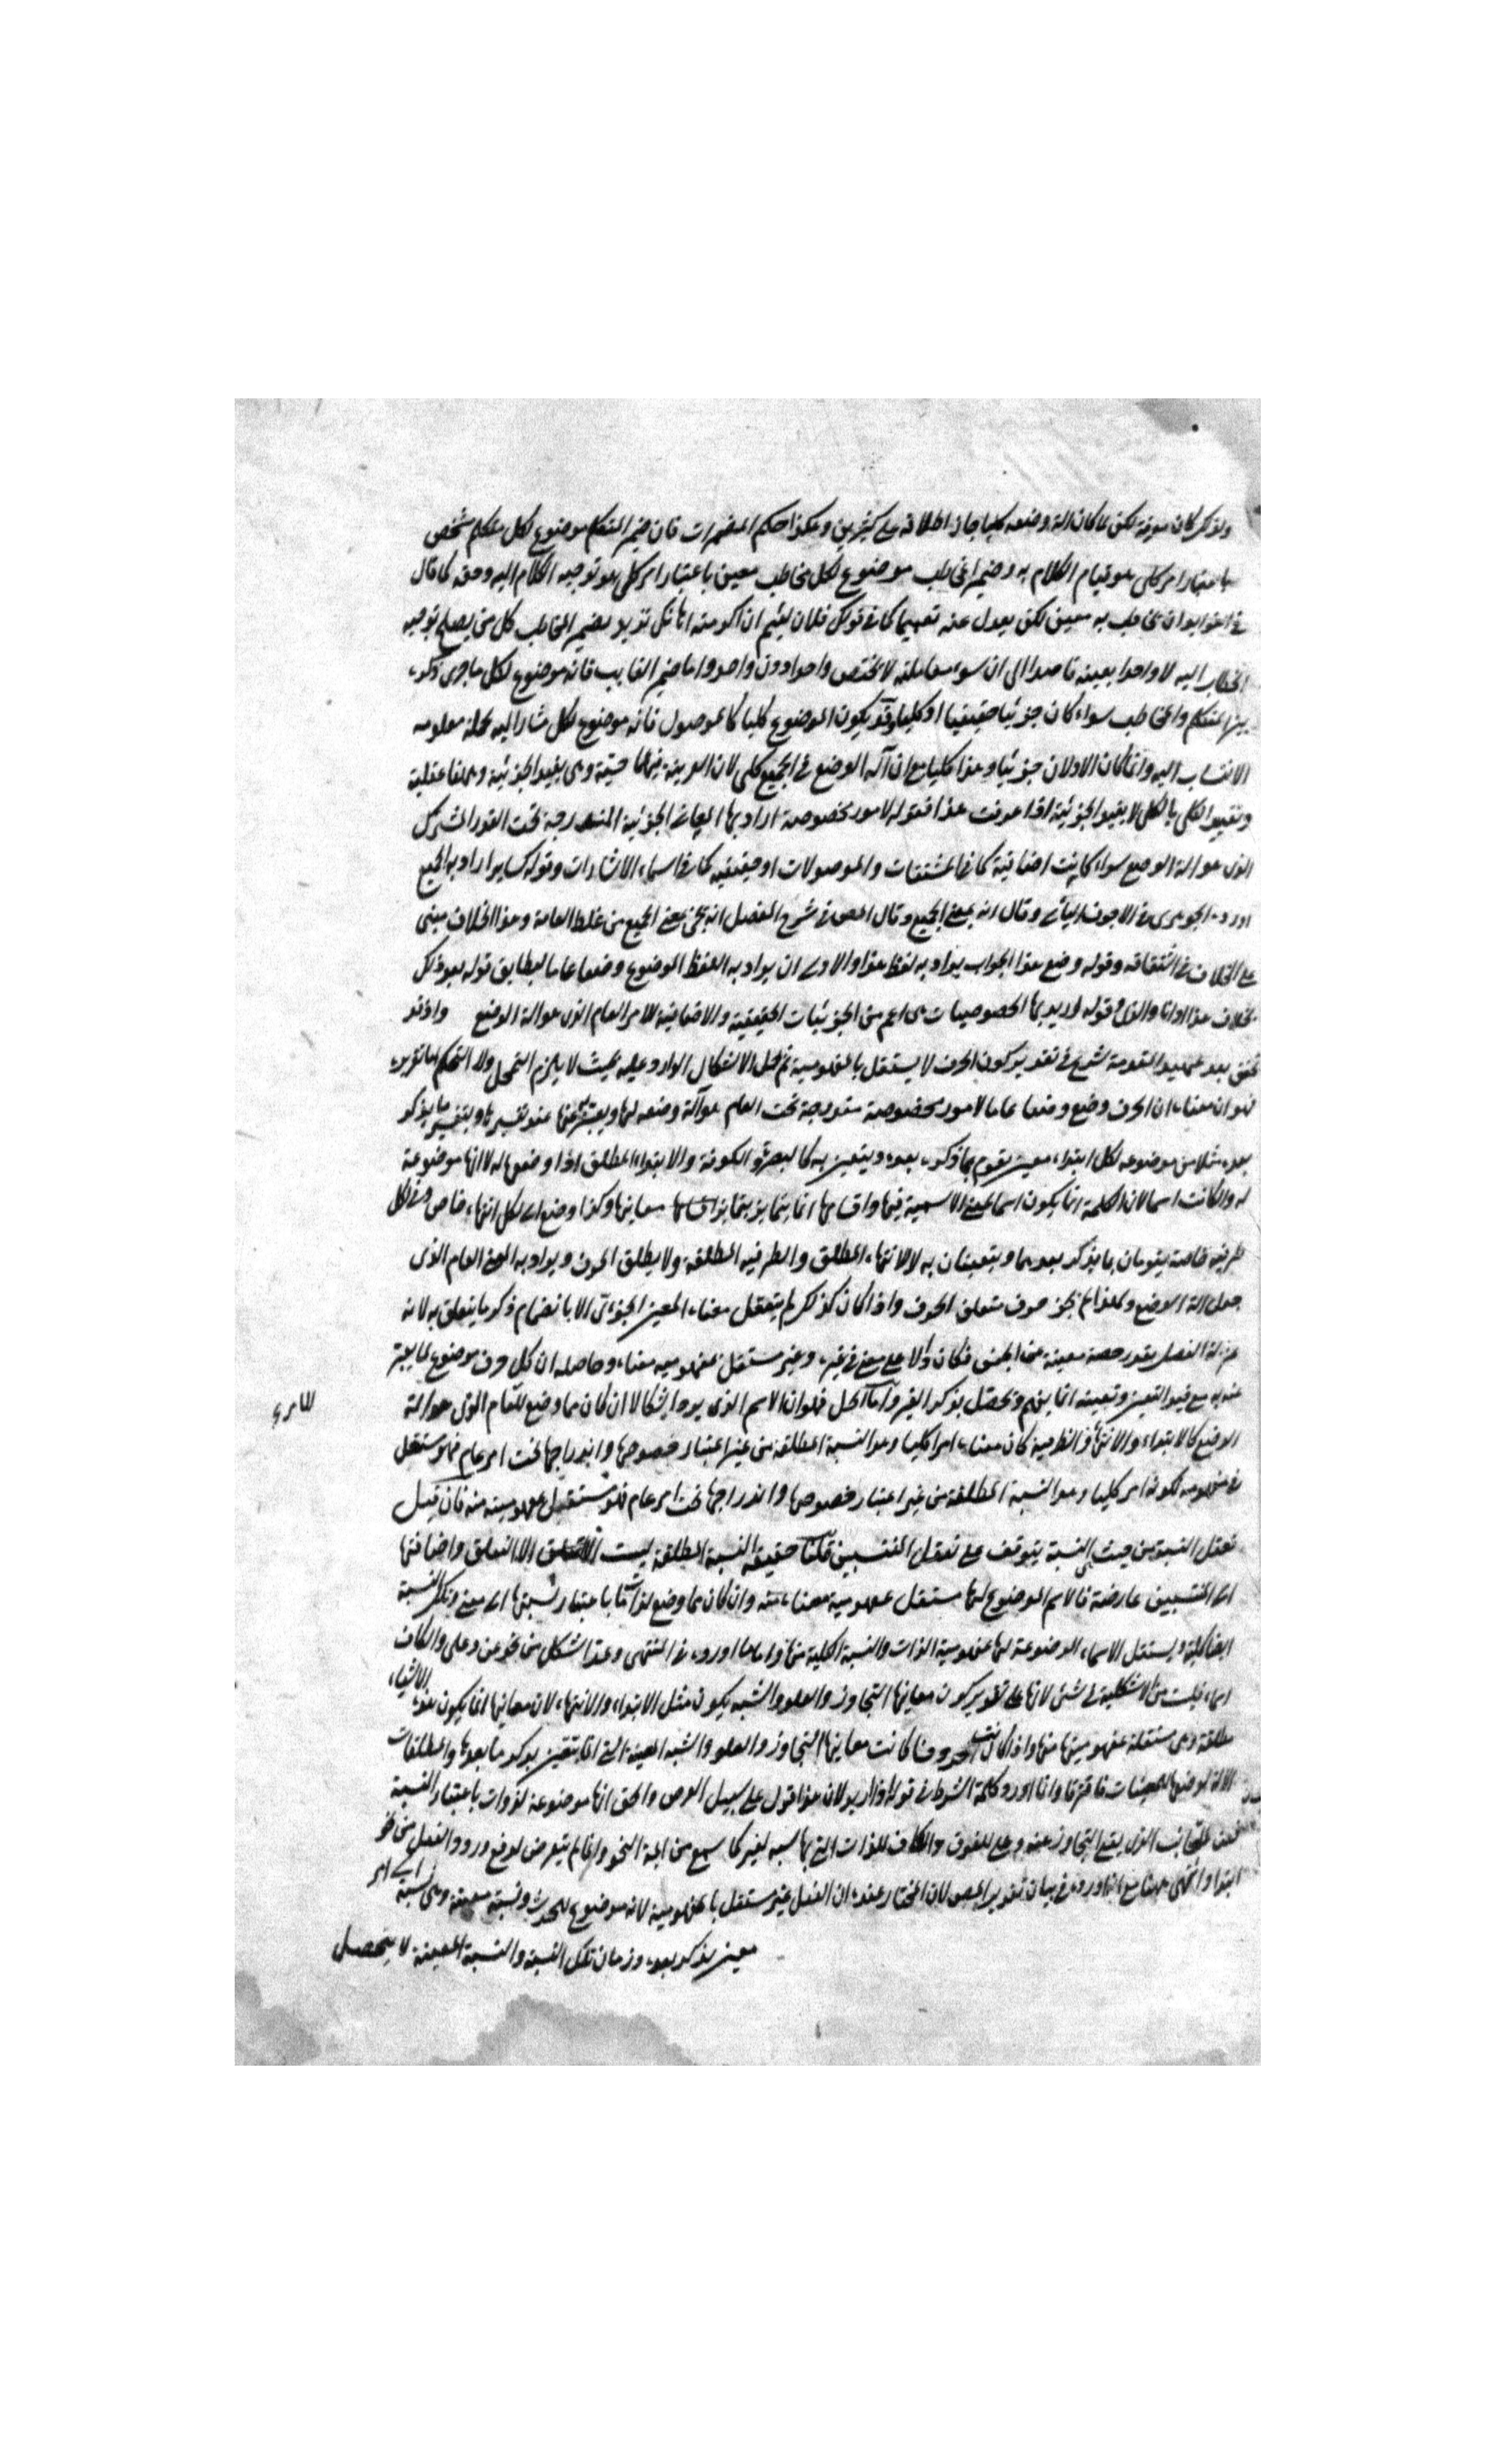 ولذلك كان معرفة لكن لما كان آلة وضعه كليا جاز اطلاقه على كثيرين وهكذا حكم المضمرات فان ضمير المتكلم موضوع لكل متكلم شخص
باعتبار امر كلى هو قيام الكلام به وضمير المخاطب موضوع لكل مخاطب معين باعتبار امر كلى هو توجيه الكلام اليه وحقه كما قال
ان يخاطب به معين لكن يعدل عنه تعميما كما فى قولك فلان لئيم ان اكرمته اهانك تريد بضمير المخاطب كل من يصلح توجيه
الخطاب اليه لا واحدا بعينه قاصدا الى ان سوء معاملته لا يختص واحدا دون واحد واما ضمير الغايب فانه موضوع لكل ما جرى ذكره
المتكلم والمخاطب سواء كان جزئيا حقيقيا او كليا وقد يكون الموضوع كليا كالموصول فانه موضوع لكل مشار اليه بجملة معلومه
الانتساب اليه وانما كان الاولان جزئيا وهذا كليا مع ان آلة الوضع فى الجميع كلى لان القرينة فيهما حسية وهى يفيد الجزئية وههنا عقلية
وتقييد الكلى بالكلى لا يفيد الجزئية اذا عرفت هذا فقوله لامور مخصوصة اراد بها المعانى الجزئية المندرجة تحت القدر المشترك
الذى هو آلة الوضع سواء كانت اضافية كما فى المشتقات والموصولات او حقيقية كما فى اسماء الاشارات وقوله سايرا راد به الجميع
اورده الجوهرى فى الاجوف اليائى وقال انه بمعنى الجميع وقال المص فى شرح المفصل انه يجئ بمعنى الجميع من غلط العامة وهذا الخلاف مبنى
على الخلاف فى اشتقاقه وقوله وضع هذا الجواب يراد به لفظ هذا والاولى ان يراد به اللفظ الموضوع وضعا عاما ليطابق قوله بعد ذلك
بخلاف هذا وانا والذى وقوله اريد بها الخصوصيات هى اعم من الجزئيات الحقيقية والاضافية للامر العام الذى هو آلة الوضع واذ قد
تحقق بعد تمهيد المقدمة شرع فى تقدير كون الحرف لا يستقل بالمفهومية ثم لحل الاشكال الوارد عليه بحيث لا يلزم التمحل ولا التحكم اما تقريره
فهو ان معناه ان الحرف وضع وضعا عاما لامور مخصوصة مندرجة تحت العام هو آلة وضعه لها ويعتبر عنها عند تفسيرها ما يذكر
بعده مثلا من موضوعة لكل ابتداء معين يقوم بما ذكر بعده ويتعين به كالبصرة والكوفة والابتداء المطلق اذا وضعها له لا انها موضوعة
له والا كانت اسما لان الكلمة انما يكون اسما لمعنى الاسمية فيها واقسامها انما يتمايز بتمايز معانيها وكذا وضع الى لكل انتهاء خاص وفى لكل
ظرفية خاصة يقومان بما يذكر بعدهما ويتعينان به لا الانتهاء المطلق والظرفية المطلقة ولا يطلق الحرف ويراد به المعنى العام الذى
جعل آلة الوضع ولهذا لم يجز حذف متعلق الحروف واذا كان كذلك لم يتعقل معناه المعين الجزئى الا بانضمام ذكر ما يتعلق به لانه
بمنزلة الفصل يقرر حصة معينة من الجنس فكان دالا على معنى فى غيره وغير مستقل بمفهومية معناه وحاصله ان كل حرف موضوع لما يعتبر
عنده مع قيد التعيين وتعينه انما يفهم ويحصل بذكر الغير واما الحل فهو ان الاسم الذى يرد اشكالا ان كان مما وضع للعام الذى هو آلة
الوضع كالابتداء والانتهاء والظرفية كان معناه امرا كليا وهو النسبة المطلقة من غير اعتبار خصوصها واندراجها تحت امر عام فهو مستقل
فى مفهومه لكونه امر كليا وهو النسبة المطلقة من غير اعتبار خصوصها واندراجها تحت امر عام فهو مستقل بمفهومية منه فان قيل
تعقل النسبة من حيث هى النسبة يتوقف على تعقل المنتسبين قلنا حقيقة النسبة المطلقة ليست الا التعلق واضافتها
الى المنتسبين عارضة فالاسم الموضوع لها مستقل بمفهومية معناه منه وان كان مما وضع لذات ما باعتبار نسبتها الى معنى وتلك النسبة
ايضا كلية ويستقل الاسماء الموضوعة لها بمفهومية الذات والنسبة الكلية منها واما ما اورده فى المنتهى وعدا شكل من نحو عن وعلى والكاف
اسماء فليست من الاشكلية فى شئ لانها على تقدير كون معانيها التجاوز والعلو والشبه يكون مثل الابتداء والانتهاء لان معانيها انما يكون هذه الاشياء
مطلقة وهى مستقلة بمفهوميتها منها واذا كانت حروفا كانت معانيها التجاوز والعلو والشبه المعينة التى انما يتعين بذكر ما بعدها والمطلقات
الآلة لوضعها للمعينات فافترقا وانما اورد كلمة الشرط فى قوله لان هذا قول على سبيل الفرض والحق انها موضوعة لذوات باعتبار النسبة
للجانب الذى يقع التجاوز عنه وعلى للفوق والكاف للذات التى بها شبه لغير كما سمع من ائمة النحو وانما لم يتعرض لدفع ورود الفعل من نحو
ابتدا وانتهى ههنا مع انه اورده فى بيان تقدير المص لان المختار عنده ان الفعل غير مستقل بالمفهومية لانه موضوع للحدث ونسبة معينة وهى نسبته الى امر
معين يذكر بعده وزمان تلك النسبة والنسبة المعينة لا يتحصل